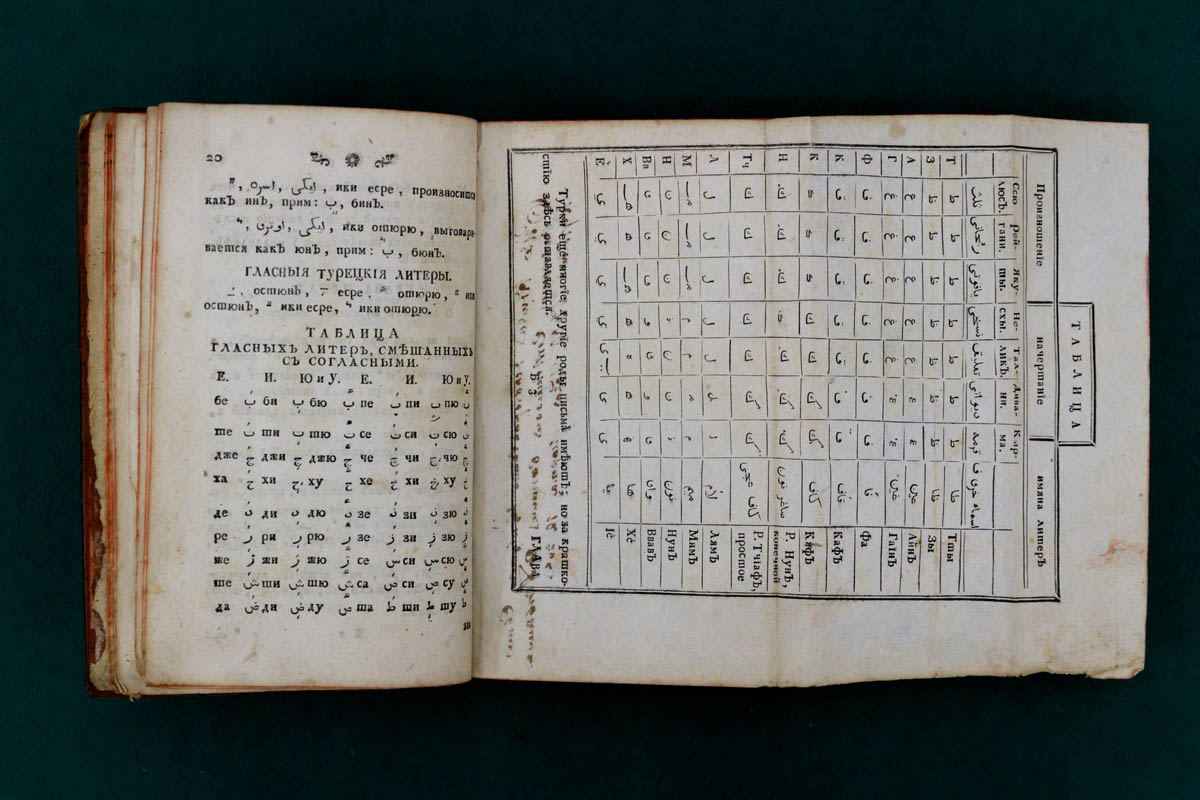 20
ики есре, произносится
какЪ инЪ, прим: بٍ, бинЪ.
ايكى, اوترى, ики отюрю, выговари-
вается какЪ юнЪ, прим: بٌ, бюнЪ.
ГЛАСНЫЯ ТУРЕЦКІЯ ЛИТЕРЫ.
остюнЪ, есре, отюрю, или
остюнЪ, ики есре, ики отюрю.
ТАБЛИЦА
ГЛАСНЫХЪ ЛИТЕРЪ, СМѢШАННЫХЪ
СЪ СОГЛАСНЫМИ.
Е. И. Ю и У. Е. И. Ю и У.
бе ب би ب бю پ пе پ пи پ пю
ше ت ши ت шю ث се ث си ث сю
дже ج джи ج джю چ че چ чи چ чю
ха ح хи ح ху خ хе خ хи خ ху
де د ди د дю ذ зе ذ зи ذ зю
ре ر ри ر рю ز зе ز зи ز зю
же ژ жи ژ жю س се س си س сю
ше ش ши ش шю ص са ص си ص су
да ض ди ض ду ط ша ط ши ط шу
ТАБЛИЦА
Произношеніе начершаніе имяна литерЪ
Ссю-люсЪ. Рей-гани. Яку-шы. Не-схы. Тал-ликЪ. Дива-ни. Кыр-ма.
ثلث ريحانى ياقوتى نسخى تعليق ديوانى قرمه
Т ط ط ط ط ط ط ط طا Тшы
З ظ ظ ظ ظ ظ ظ ظ ظا Зы
А ع ع ع ع ع ع ع عين АйнЪ
Г غ غ غ غ غ غ غ غين ГаінЪ
Ф ف ف ف ف ف ف ف فا Фа
К ق ق ق ق ق ق ق قاف КафЪ
К ك ك ك ك ك ك ك كاف КяфЪ
Н صاغر نون Р. НунЪ, конечной
Тч كاف عجمى Р. ТчіафЪ, простое
Л ل ل ل ل ل ل ل لام ЛямЪ
М م م م م م م م ميم МимЪ
Н ن ن ن ن ن ن ن نون НунЪ
Вв و و و و و و و واو ВвавЪ
Х ه ه ه ه ه ه ه ها Хѐ
Ѐ ى ى ى ى ى ى ى يا Іѐ
Турки еще многіе другіе роды письмѣ имѣютЪ; но за крашко-
стію здѣсь оставляется.
ГЛАВА